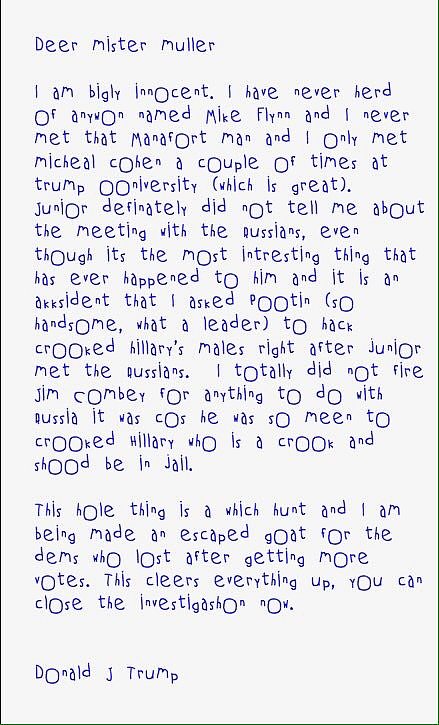 Deer mister muller
I am bigly innocent. I have never herd
of anywon named Mike Flynn and I never
met that Manafort man and I only met
micheal cohen a couple of times at
trump ooniversity (which is great).
Junior definately did not tell me about
the meeting with the Russians, even
though its the most intresting thing that
has ever happened to him and it is an
akksident that I asked Pootin (so
handsome, what a leader) to hack
crooked hillary's males right after junior
met the Russians. I totally did not fire
Jim combey for anything to do with
Russia it was cos he was so meen to
crooked Hillary who is a crook and
shood be in jail.
This hole thing is a which hunt and I am
being made an escaped goat for the
dems who lost after getting more
votes. This cleers everything up, you can
close the investigashon now.
Donald J Trump